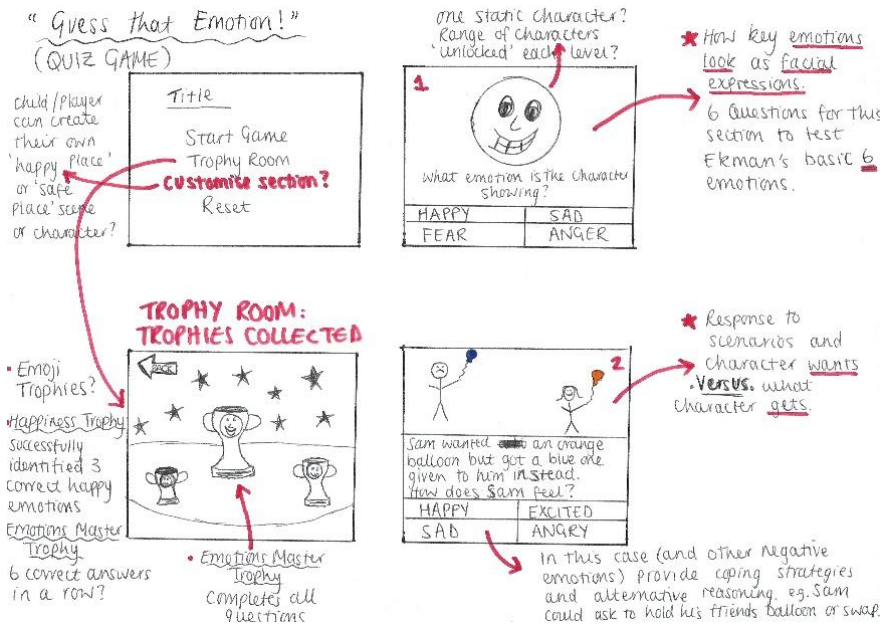 "Guess that Emotion!"
(QUIZ GAME)
child/player
can create
their own
'happy place'
or 'safe
place' scene
or character?
Title
Start Game
Trophy Room
Customise section?
Reset
one static character?
Range of characters
'unlocked' each level?
1
What emotion is the character
showing?
HAPPY
SAD
FEAR
ANGER
* How key emotions
look as facial
expressions.
6 Questions for this
section to test
Ekman's basic 6
emotions.
TROPHY ROOM:
TROPHIES COLLECTED
BACK
• Emoji
Trophies?
• Happiness Trophy
successfully
identified 3
correct happy
emotions
Emotions Master
Trophy
6 correct answers
in a row?
• Emotions Master
Trophy
Completes all
questions
2
Sam wanted an orange
balloon but got a blue one
given to him instead.
How does Sam feel?
HAPPY
EXCITED
SAD
ANGRY
* Response to
scenarios and
character wants
.Versus. what
character gets.
In this case (and other negative
emotions) provide coping strategies
and alternative reasoning. eg. Sam
could ask to hold his friends balloon or swap.